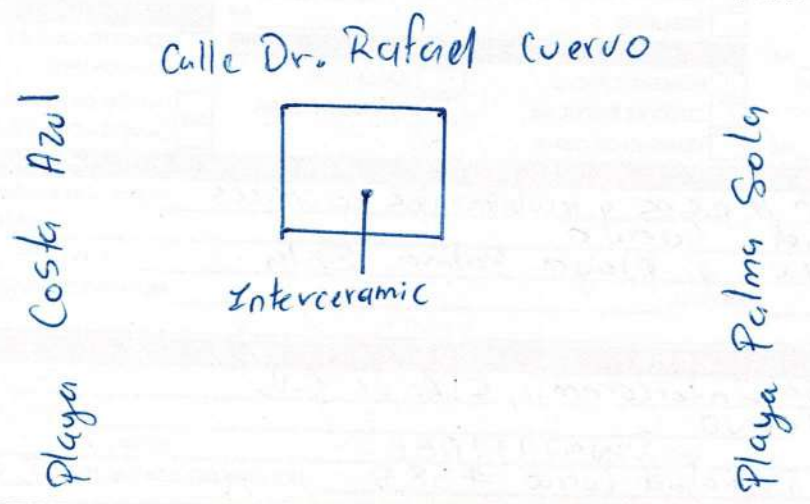 Calle Dr. Rafael Cuervo
Playa Costa Azul
Interceramic
Playa Palma Sola